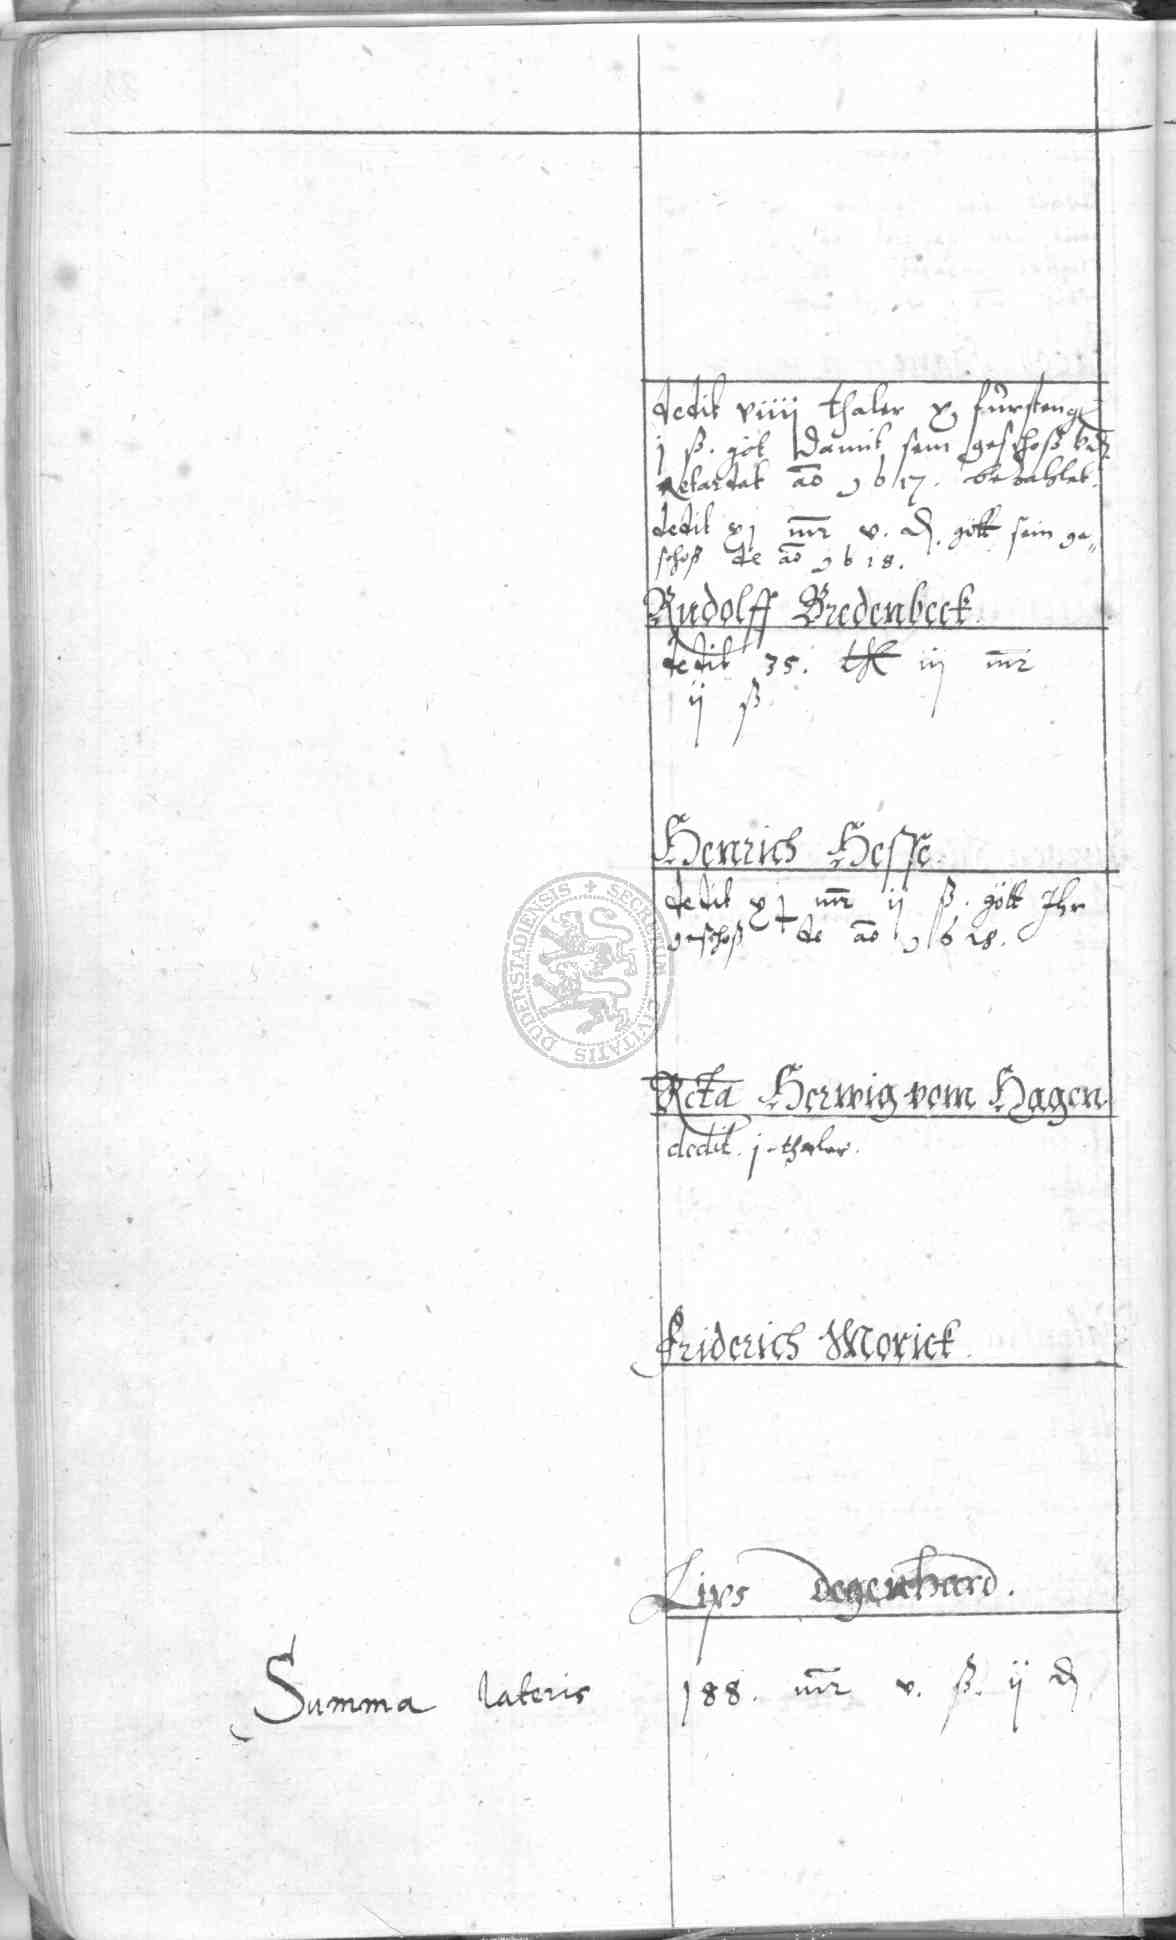 dedit viiij thaler x fürsteng
j ß. gōt damit sein geschoß vnd
Retardat ao 1617. bezahlet.
dedit xj mr v. ₰. gōtt sein ge„
schoß de ao 1618.
Rudolff Bredenbeck
dedit 35. thl iij mr
ij ß
Henrich Hesse
dedit xj mr ij ß. gött Ihr
geschoß de ao 1618.
DUDERSTADIENSIS + SECRETUM CIVITATIS
Rcta Herwig vom Hagen.
dedit. j thaler.
Friderich Morick.
Lips Degenhard.
Summa lateris 188. mr v. ß. ij ₰